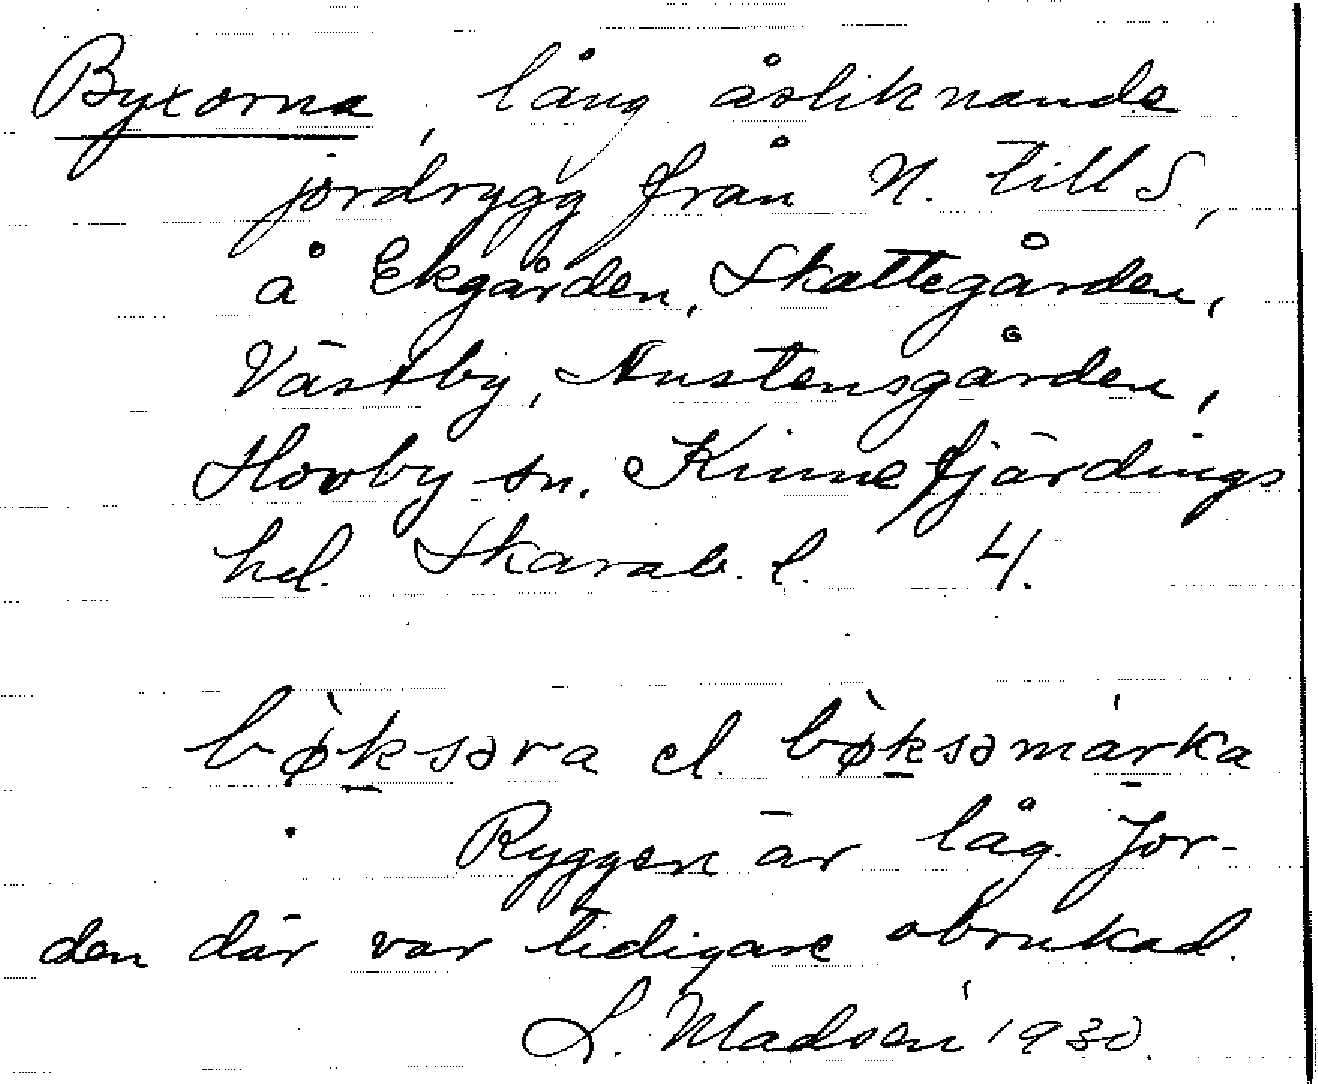 Byxorna, lång åsliknande
jordrygg från N. till S,
å Ekgården, Skattegården,
Västby, Austensgården,
Hovby sn. Kinnefjärdings
hd. Skarab. l. 4.
bø̀ksəra el. bø̀ksəmárka
Ryggen är låg. Jor-
den där var tidigare obrukad.
L. Madsén 1930